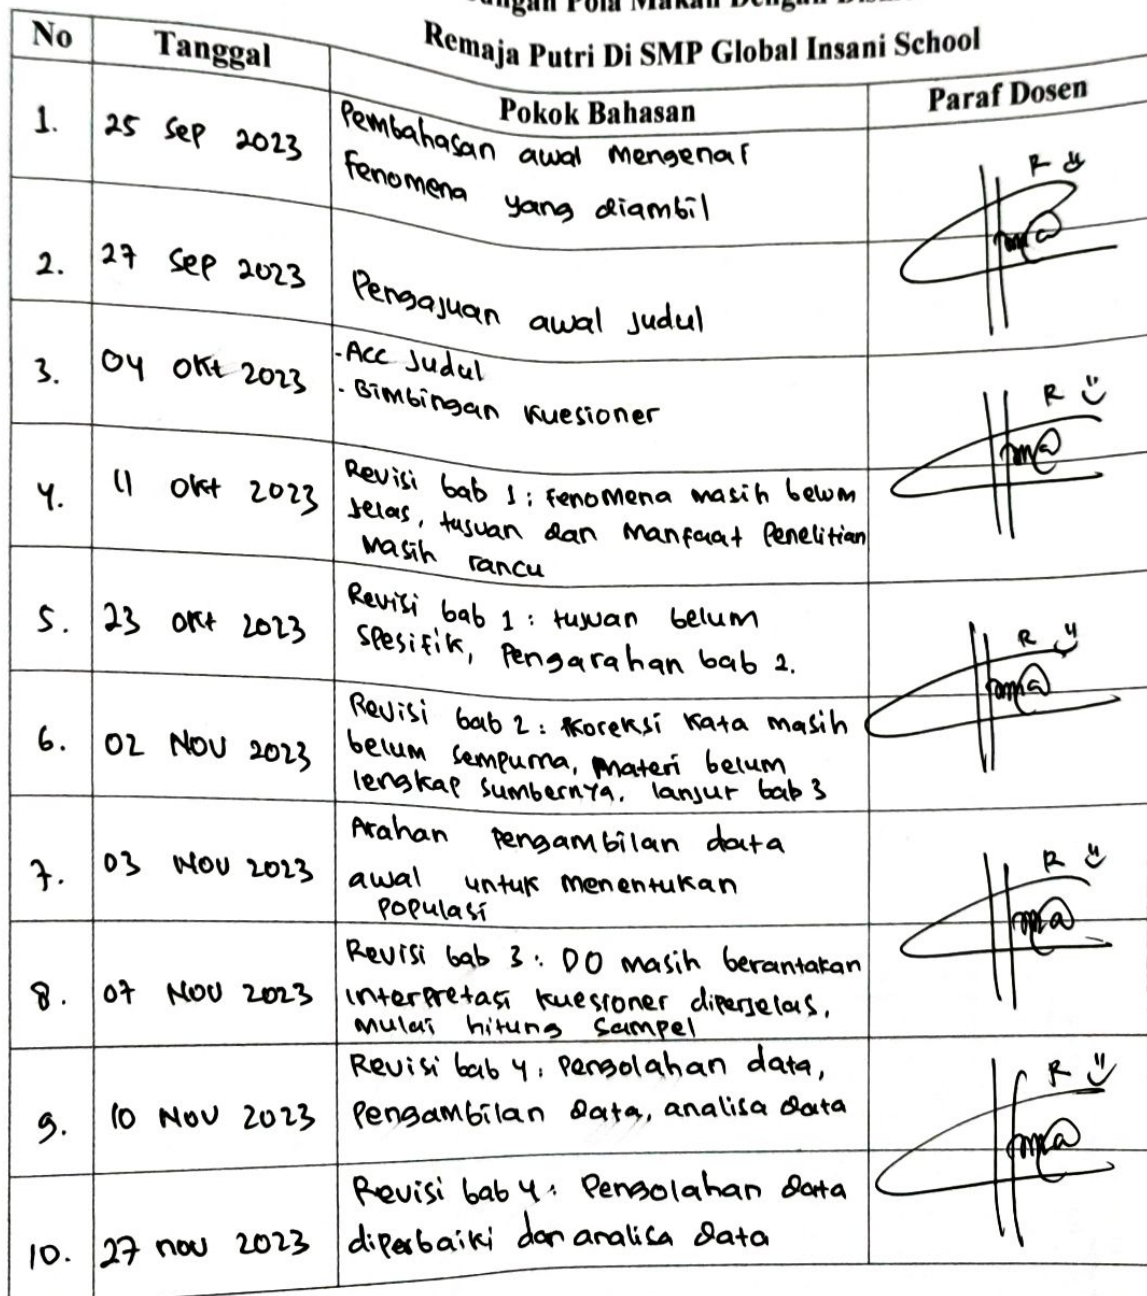 Pola Makan Dengan
Remaja Putri Di SMP Global Insani School
No Tanggal Pokok Bahasan Paraf Dosen
1. 25 Sep 2023 Pembahasan awal mengenai
fenomena yang diambil
R
2. 27 Sep 2023 Pengajuan awal judul
3. 04 Okt 2023 - Acc judul
- Bimbingan kuesioner
R
4. 11 Okt 2023 Revisi bab 1 : fenomena masih belum
jelas, tujuan dan manfaat penelitian
masih rancu
5. 23 Okt 2023 Revisi bab 1 : tujuan belum
spesifik, pengarahan bab 2.
R
6. 02 Nov 2023 Revisi bab 2 : koreksi kata masih
belum sempurna, materi belum
lengkap sumbernya, lanjut bab 3
7. 03 Nov 2023 Arahan pengambilan data
awal untuk menentukan
populasi
R
8. 07 Nov 2023 Revisi bab 3 : DO masih berantakan
interpretasi kuesioner diperjelas,
mulai hitung sampel
9. 10 Nov 2023 Revisi bab 4 : pengolahan data,
pengambilan data, analisa data
R
10. 27 nov 2023 Revisi bab 4 : Pengolahan data
diperbaiki dan analisa data